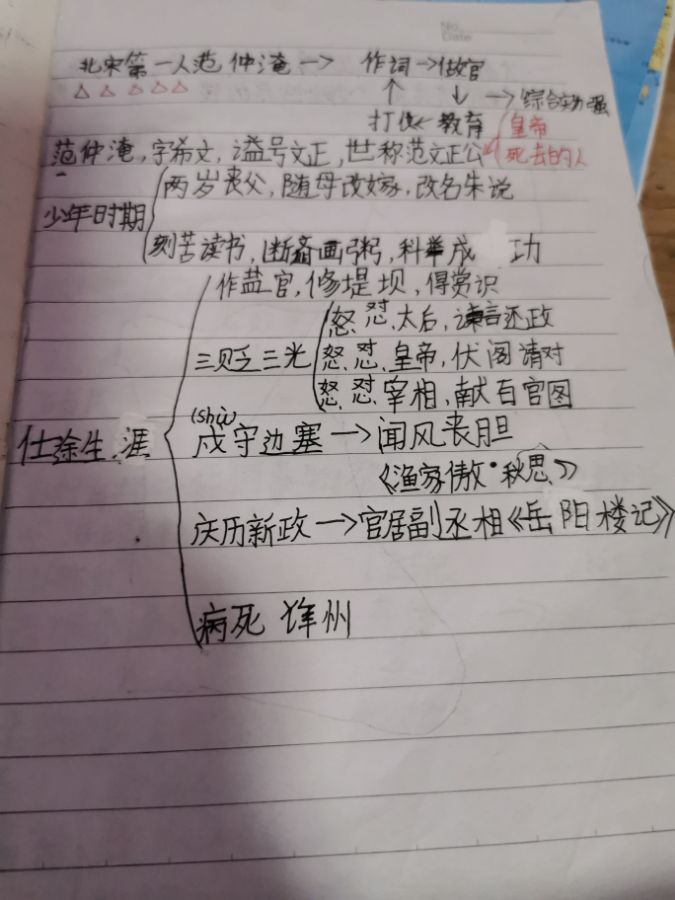 No.
Date
北宋第一人范仲淹→ 作词→做官
△ △ △ △ △ ↑ ↓ →综合实力强
打仗←教育 皇帝
范仲淹,字希文,谥号文正,世称范文正公 死去的人
两岁丧父,随母改嫁,改名朱说
少年时期
刻苦读书,断齑画粥,科举成功
作盐官,修堤坝,得赏识
怒怼太后,谏言还政
三贬三光 怒怼皇帝,伏阁请对
怒怼宰相,献百官图
(shù)
仕途生涯 戍守边塞→闻风丧胆
《渔家傲·秋思》
庆历新政→官居副丞相《岳阳楼记》
病死 州